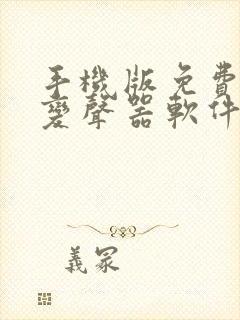 手機版免費
變聲器軟件
義冢